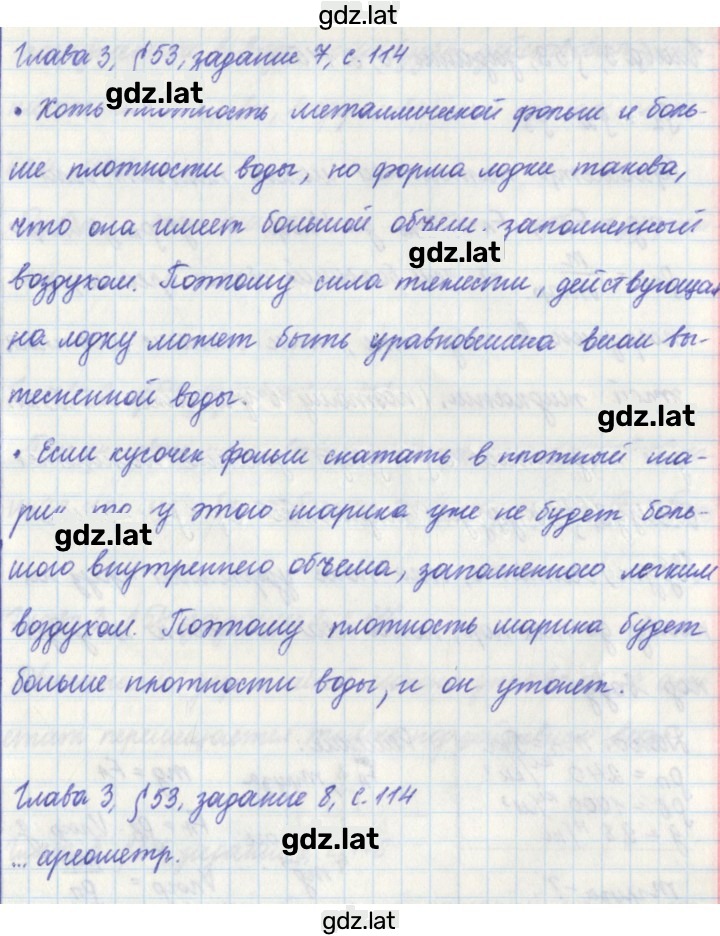 gdz.lat
Глава 3, § 53, задание 7, с. 114
gdz.lat
• Хоть плотность металлической фольги и боль-
ше плотности воды, но форма лодки такова,
что она имеет большой объем заполненный
gdz.lat
воздухом. Поэтому сила тяжести, действующая
на лодку может быть уравновешена весом вы-
тесненной воды.
gdz.lat
• Если кусочек фольги скатать в плотный ша-
рик то у этого шарика уже не будет боль-
gdz.lat
шого внутреннего объема, заполненного легким
воздухом. Поэтому плотность шарика будет
больше плотности воды, и он утонет.
Глава 3, § 53, задание 8, с. 114
gdz.lat
... ареометр.
gdz.lat